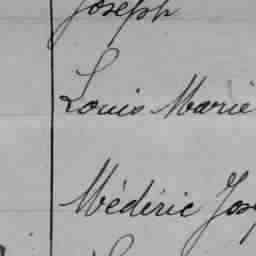 Joseph
Louis Marie
Médéric Jos